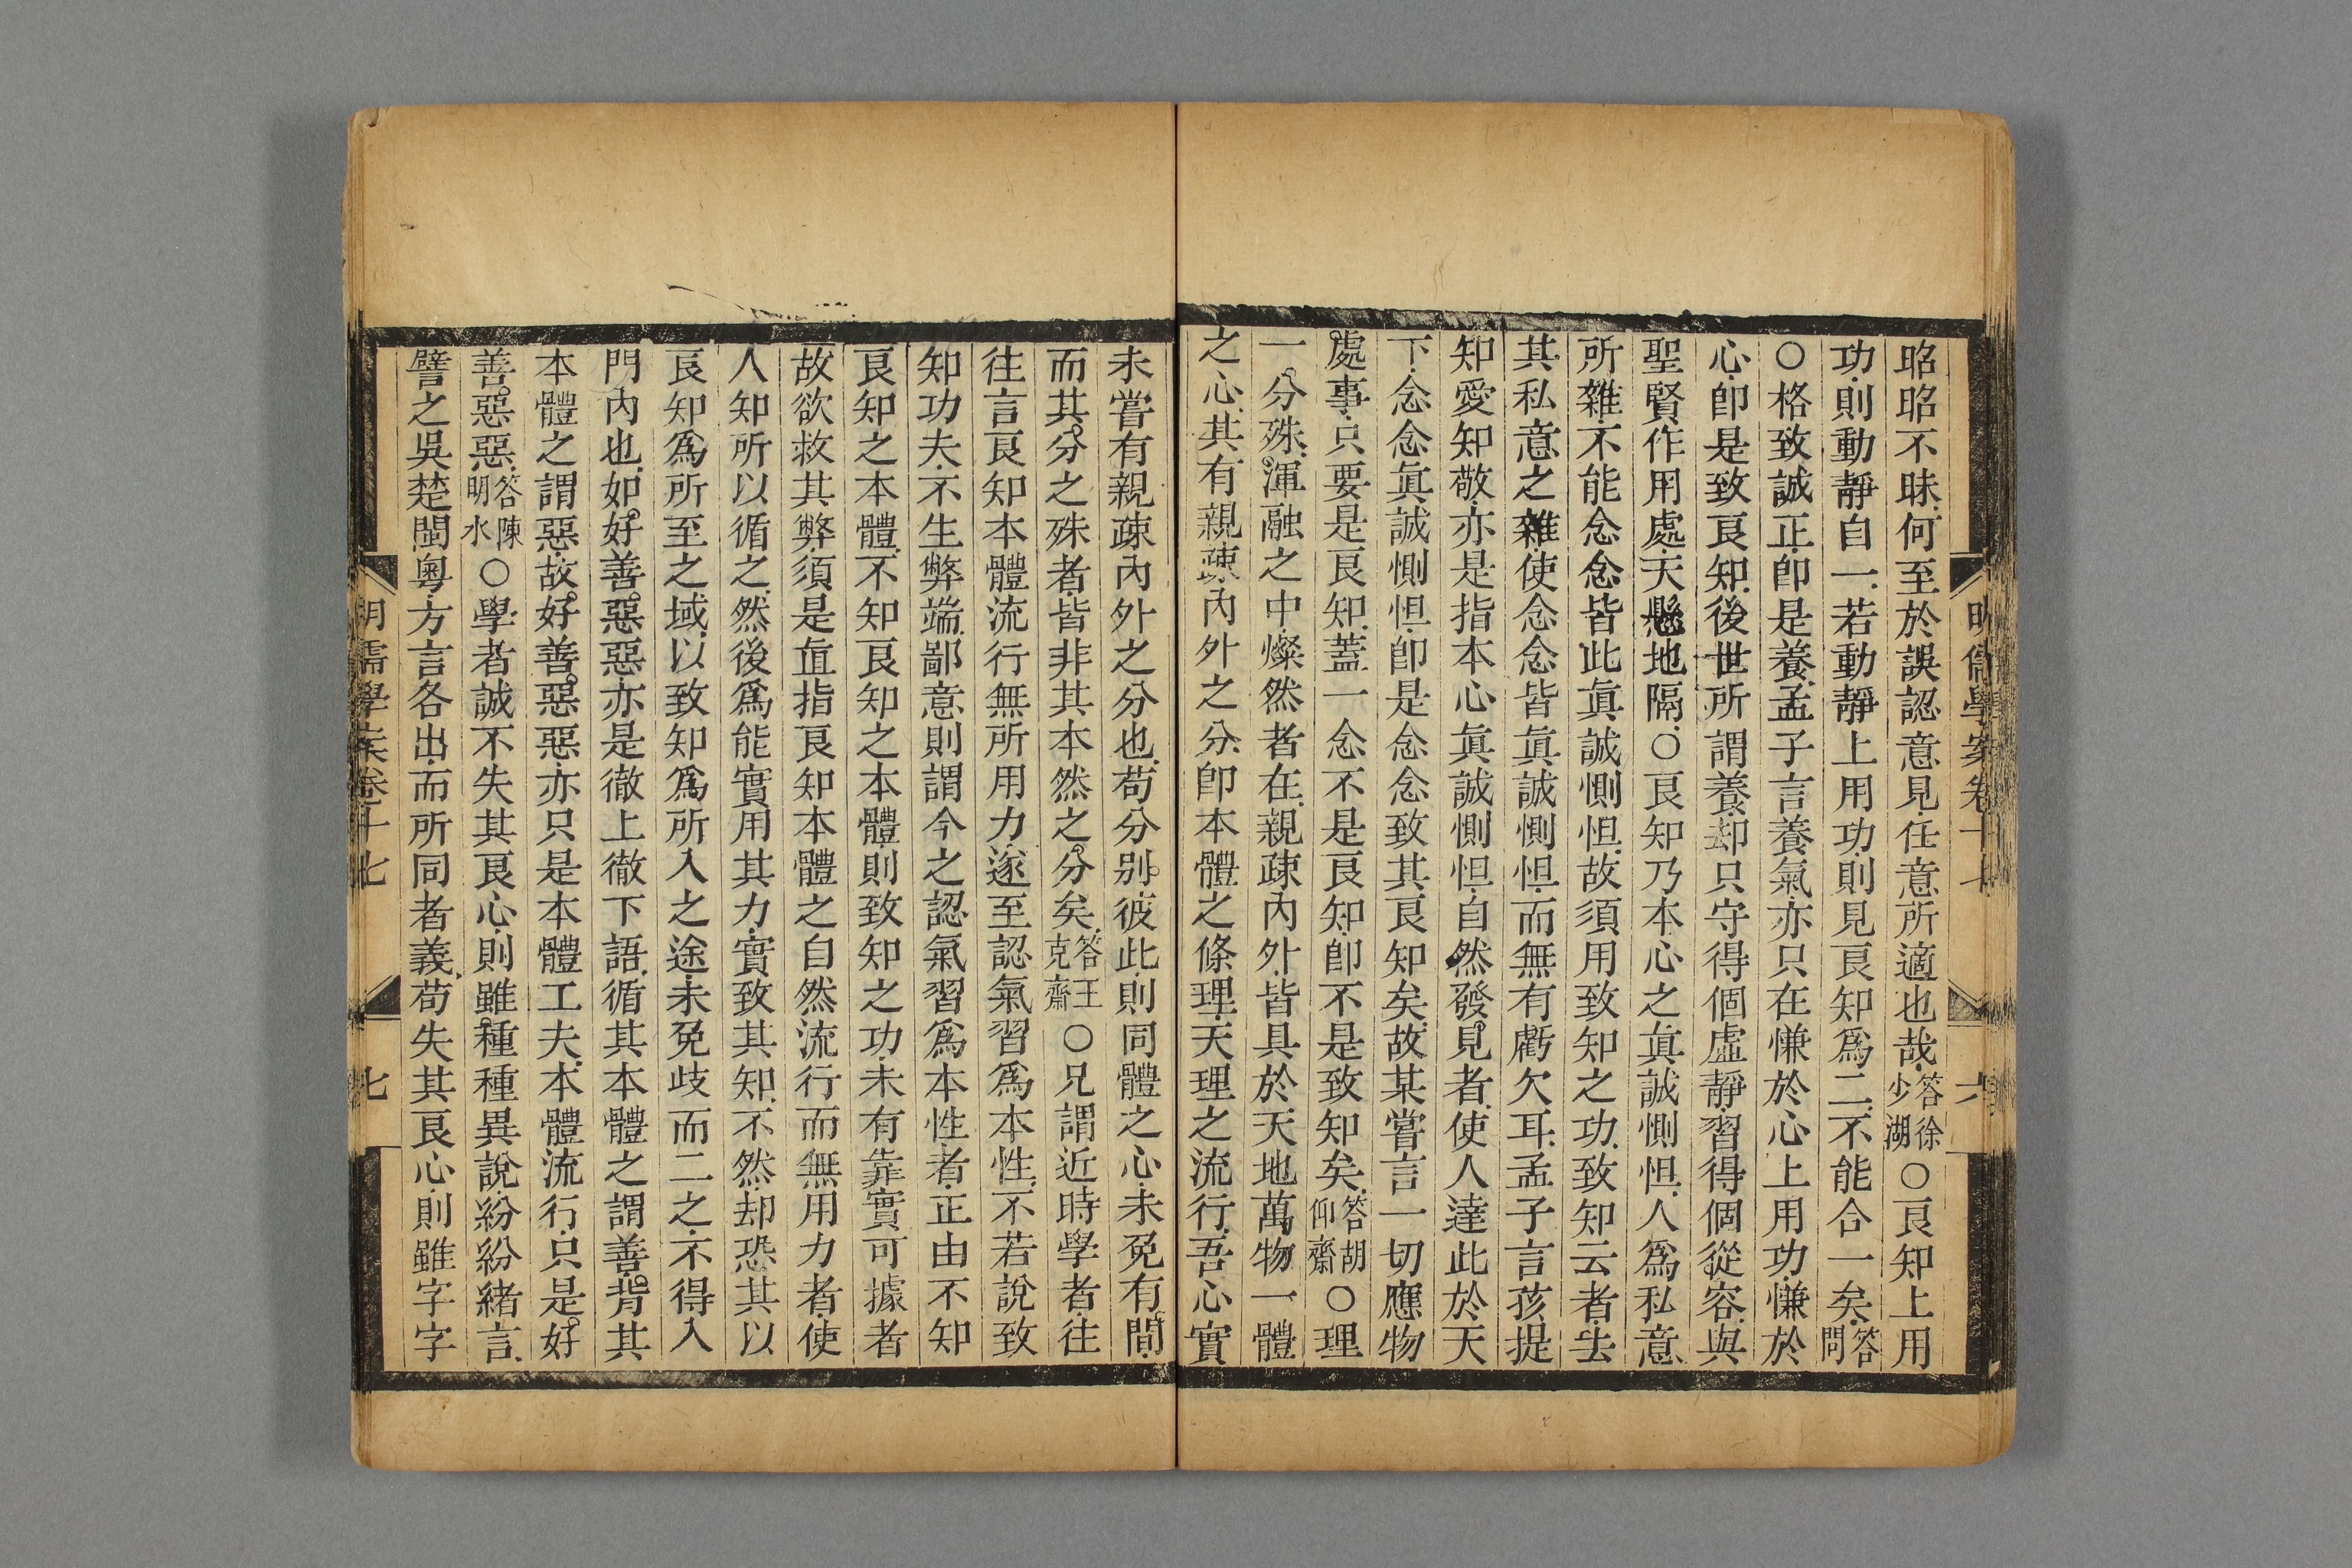 明儒學案卷十七
六
昭昭不昧何至於誤認意見任意所適也哉答徐少湖○良知上用
功則動靜自一若動靜上用功則見良知爲二不能合一矣答問
○格致誠正卽是養孟子言養氣亦只在慊於心上用功慊於
心卽是致良知後世所謂養却只守得個虛靜習得個從容與
聖賢作用處天懸地隔○良知乃本心之眞誠惻怛人爲私意
所雜不能念念皆此眞誠惻怛故須用致知之功致知云者去
其私意之雜使念念皆眞誠惻怛而無有虧欠耳孟子言孩提
知愛知敬亦是指本心眞誠惻怛自然發見者使人達此於天
下念念眞誠惻怛卽是念念致其良知矣故某嘗言一切應物
處事只要是良知蓋一念不是良知卽不是致知矣答胡仰齋○理
一分殊渾融之中燦然者在親疎內外皆具於天地萬物一體
之心其有親疎內外之分卽本體之條理天理之流行吾心實
未嘗有親疎內外之分也苟分別彼此則同體之心未免有間
而其分之殊者皆非其本然之分矣答王克齋○兄謂近時學者往
往言良知本體流行無所用力遂至認氣習爲本性不若說致
知功夫不生弊端鄙意則謂今之認氣習爲本性者正由不知
良知之本體不知良知之本體則致知之功未有靠實可據者
故欲救其弊須是直指良知本體之自然流行而無用力者使
人知所以循之然後爲能實用其力實致其知不然却恐其以
良知爲所至之域以致知爲所入之途未免歧而二之不得入
門內也如好善惡惡亦是徹上徹下語循其本體之謂善背其
本體之謂惡故好善惡惡亦只是本體工夫本體流行只是好
善惡惡答陳明水○學者誠不失其良心則雖種種異說紛紛緖言
譬之吳楚閩粵方言各出而所同者義苟失其良心則雖字字
明儒學案卷十七
七